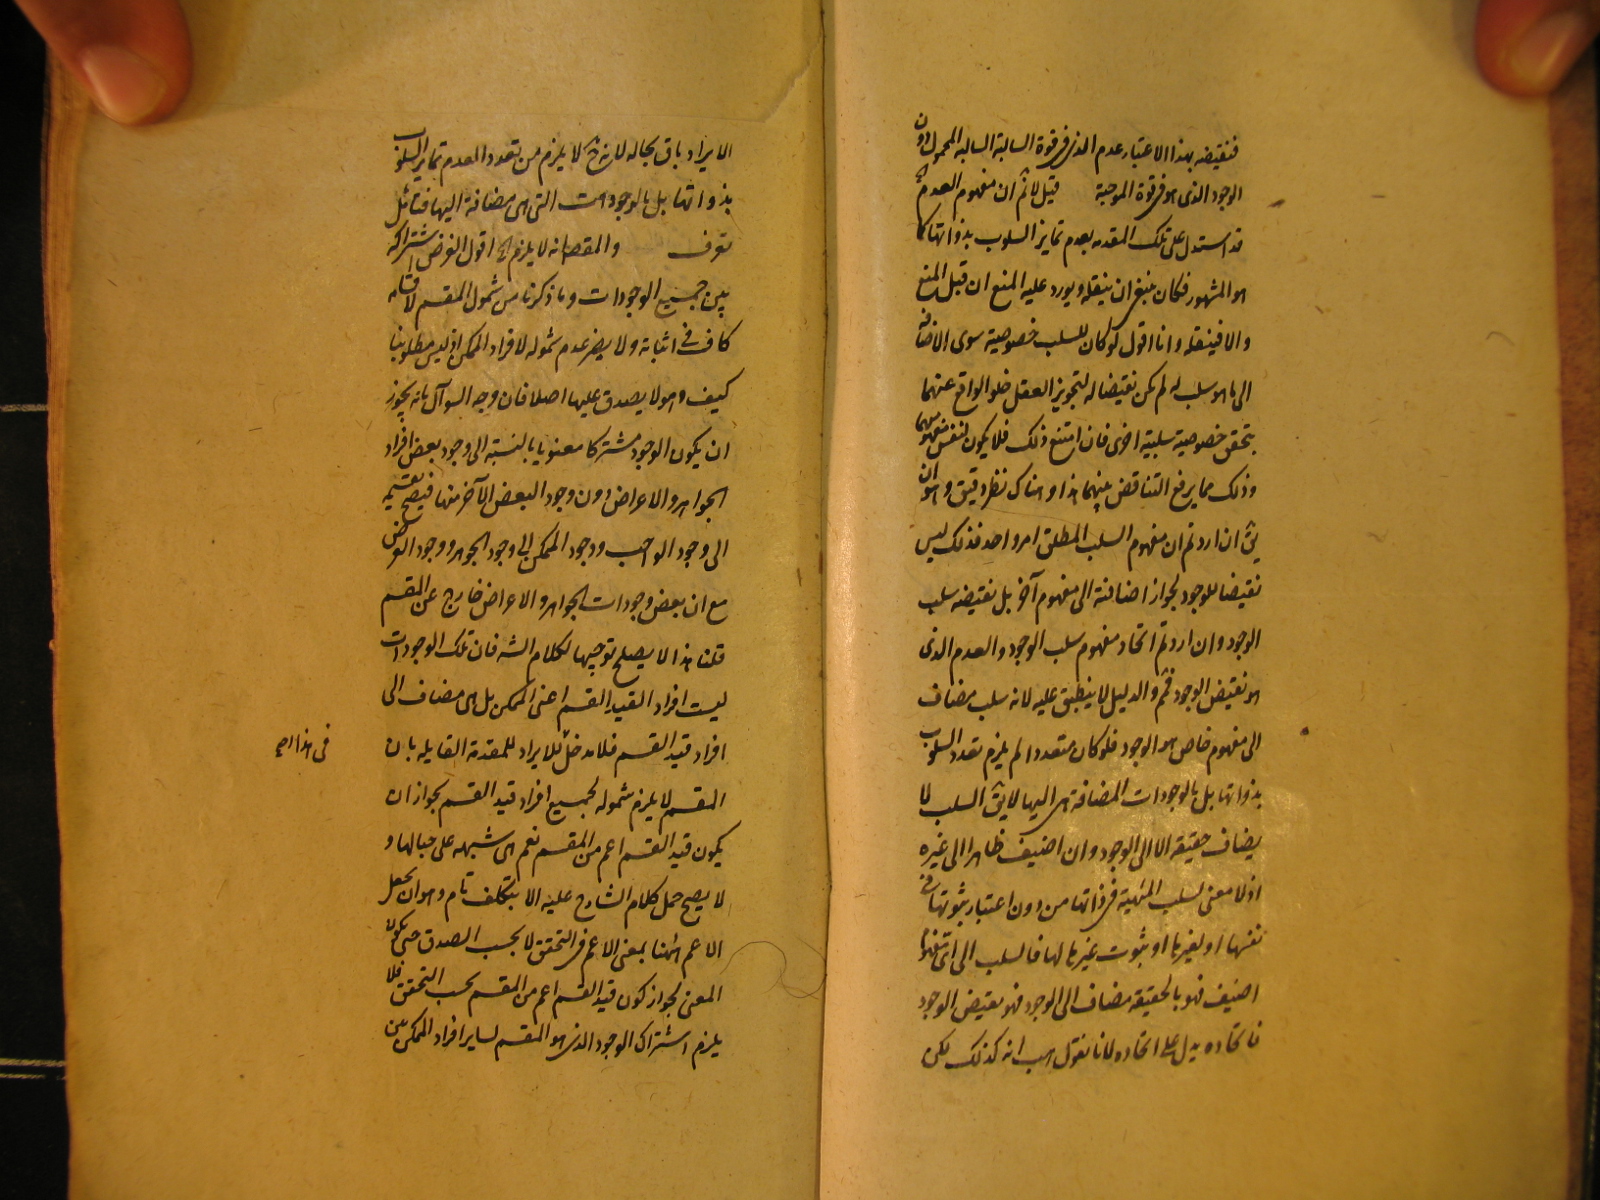 فنقيضه بهذا الاعتبار عدم الذى فى قوة السالبة السالبة المحمول دون
الوجود الذى هو فى قوة الموجبة قيل لا نم ان مفهوم العدم
قد استدل على تلك المقدمة بعدم تمايز السلوب بذواتها كما
هو المشهور فكان ينبغى ان ينقله ويورد عليه المنع ان قبل المنع
والا فينقضه وانا اقول لو كان للسلب خصوصية سوى الاضافة
الى ما هو سلب له لم يكن نقيضا له لتجويز العقل خلو الواقع عنهما
بتحقق خصوصية سلبية اخرى فان امتنع ذلك فلا يكون لنفس مفهومهما
وذلك مما يرفع التناقض بينهما هذا وهناك نظر دقيق وهو ان
يق ان اردتم ان مفهوم السلب المطلق امر واحد فذلك ليس
نقيضا للوجود لجواز اضافته الى مفهوم آخر بل نقيضه سلب
الوجود وان اردتم اتحاد مفهوم سلب الوجود والعدم الذى
هو نقيض الوجود فم والدليل لا ينطبق عليه لانه سلب مضاف
الى مفهوم خاص هو الوجود فلو كان متعددا لم يلزم تعدد السلوب
بذواتها بل بالوجودات المضافة هى اليها لا يق السلب لا
يضاف حقيقة الا الى الوجود وان اضيف ظاهرا الى غيره
اذ لا معنى لسلب المهية فى ذاتها من دون اعتبار ثبوتها فى
نفسها او لغيرها او ثبوت غيرها لها فالسلب الى اى مفهوم
اضيف فهو بالحقيقة مضاف الى الوجود فهو نقيض الوجود
فاتحاده يدل على اتحاده لانا نقول هب انه كذلك لكن
الايراد باق بحاله لانه ح لا يلزم من تعدد العدم تمايز السلوب
بذواتها بل بالوجودات التى هى مضافة اليها فتأمل
تعرف والمقصم انه لا يلزم الخ اقول الغرض اشتراكه
بين جميع الوجودات وما ذكرنا من شمول المقسم لاقسامه
كاف فى اثباته ولا يضر عدم شموله لافراد الممكن اذ ليس مطلوبنا
كيف وهو لا يصدق عليها اصلا فان وجه السؤال بانه يجوز
ان يكون الوجود مشتركا معنويا بالنسبة الى وجود بعض افراد
الجواهر والاعراض دون وجود البعض الآخر منها فيصح تقسيمه
الى وجود الواجب ووجود الممكن الى وجود الجوهر ووجود العرض
مع ان بعض وجودات الجواهر والاعراض خارج عن المقسم
قلنا هذا لا يصلح توجيها لكلام الشه فان تلك الوجودات
ليست افراد القيد القسم اعنى الممكن بل هى مضاف الى
افراد قيد القسم فلا مدخل للايراد للمقدمة القايلة بان
المقسم لا يلزم شموله لجميع افراد قيد القسم لجواز ان
يكون قيد القسم اعم من المقسم نعم هى شبهة على حيالها و
لا يصح حمل كلام الشارح عليه الا بتكلف تام وهو ان يجعل
الاعم ههنا بمعنى الاعم فى التحقق لا بحسب الصدق حتى يكون
المعنى لجواز كون قيد القسم اعم من المقسم بحسب التحقق فلا
يلزم اشتراك الوجود الذى هو المقسم لساير افراد الممكن بين
فى هذا